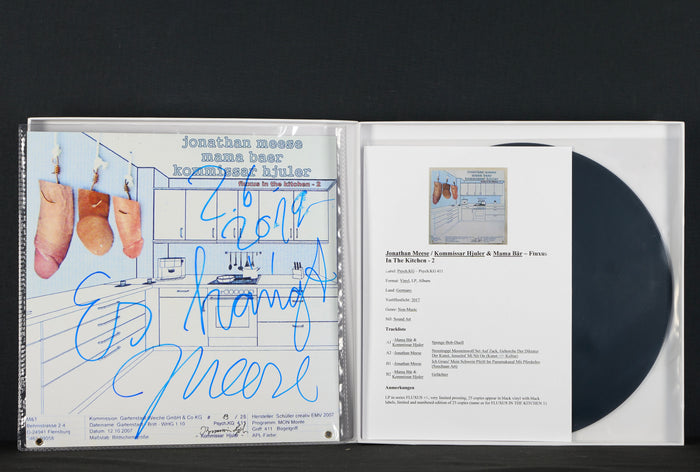 jonathan meese
mama baer
kommissar hjuler
fluxus in the kitchen - 2
2.6
2019
ES hängt
Meese
Kommission: Gartenstadt Weiche GmbH & Co KG
# 13 / 25
Hersteller: Schüller creativ EMV 2007
Dateiname: Gartenstadt Britt - WHG 1.10
Psych.KG 411
Programm: MCN Monte
D-24941 Flensburg
Datum: 12.10.2007
Griff: 411 Bügelgriff
Maßstab: Bildschirmgröße
Kommissar Hjuler
APL Farbe:
Jonathan Meese / Kommissar Hjuler & Mama Bär – Fluxus
In The Kitchen - 2
Label: Psych.KG – Psych.KG 411
Format: Vinyl, LP, Album
Land: Germany
Veröffentlicht: 2017
Genre: Non-Music
Stil: Sound Art
Tracklist
A1 Mama Bär & Kommissar Hjuler Sponge-Bob-Duell
A2 Jonathan Meese
B1 Jonathan Meese
B2 Mama Bär & Kommissar Hjuler Gelächter
Anmerkungen
LP in series FLUXUS +/-, very limited pressing, 25 copies appear in black vinyl with black
labels, limited and numbered edition of 25 copies